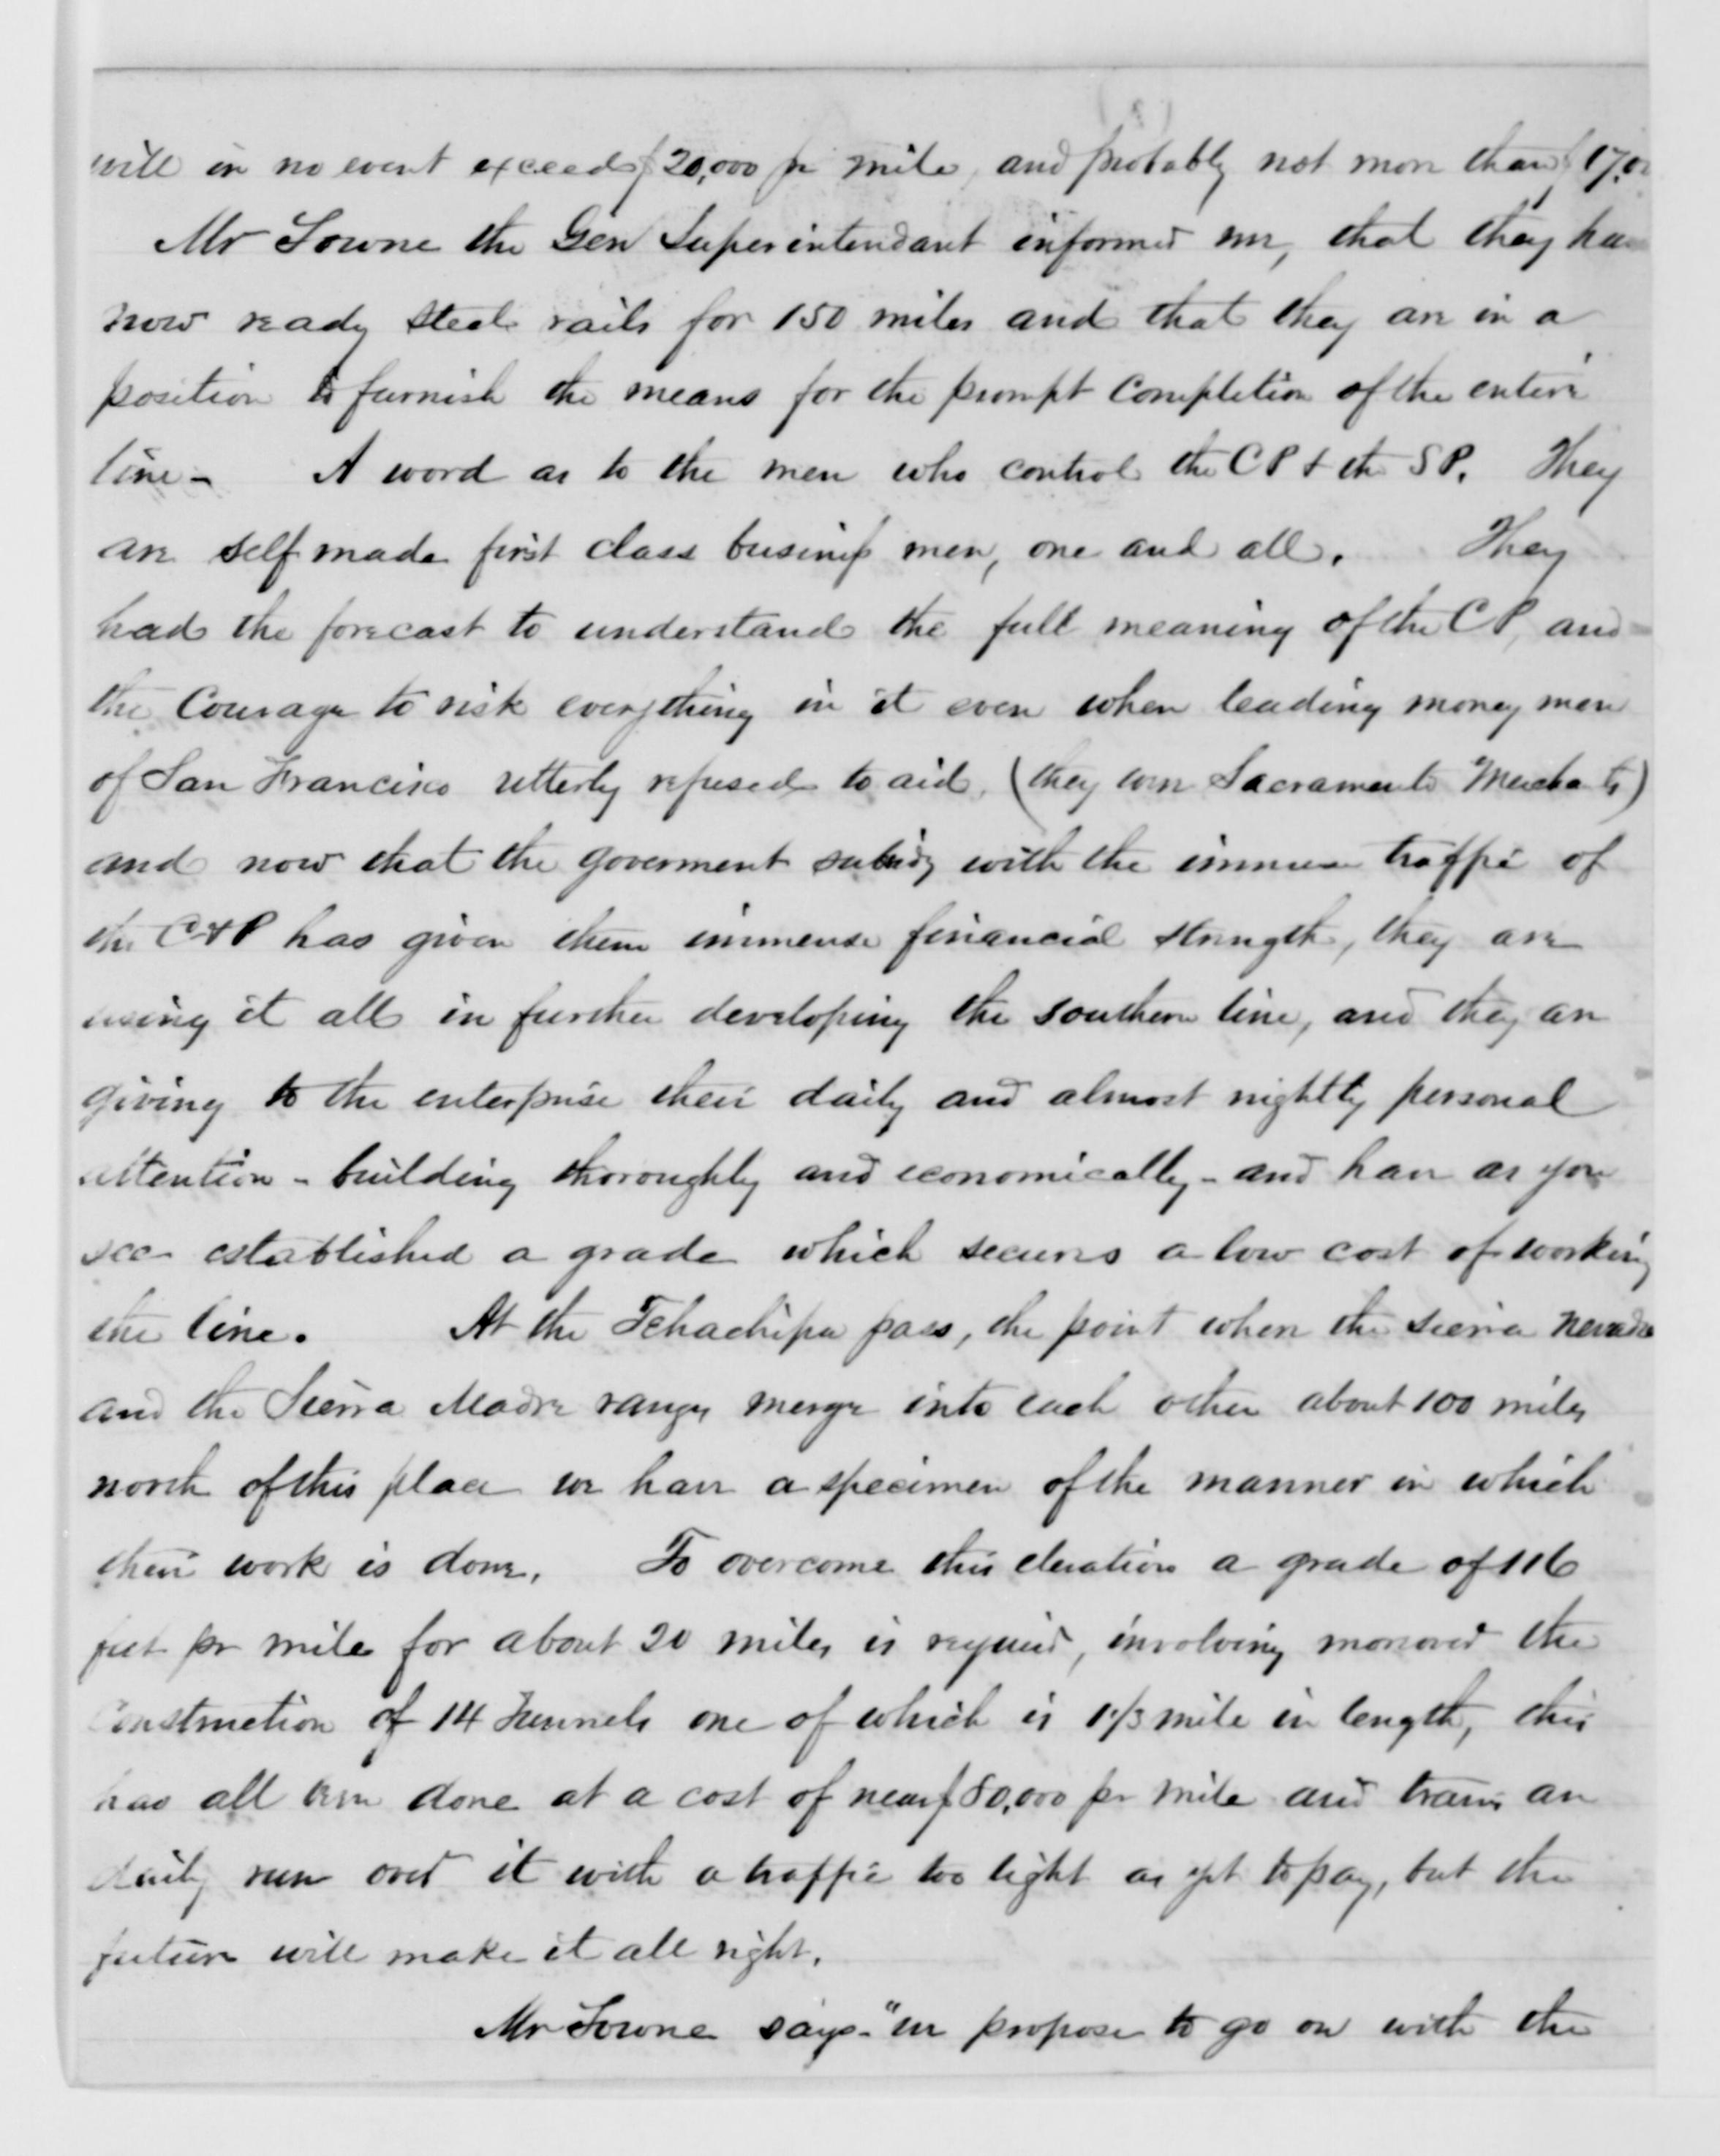 will in no event exceed $20,000 pr mile, and probably not more than $17,0
Mr Towne the Gen Superintendant informed me, that they have
now ready steel rails for 150 miles and that they are in a
position to furnish the means for the prompt completion of the entire
line - A word as to the men who control the CP & the SP. They
are self made first class business men, one and all. They
had the forecast to understand the full meaning of the CP, and
the Courage to risk everything in it even when leading money men
of San Francisco utterly refused to aid, (they were Sacramento Merchants)
and now that the goverment subsidy with the immense traffic of
the C&P has given them immense financial strength, they are
using it all in further developing the southern line, and they are
giving to the enterprise their daily and almost nightly personal
attention - building thoroughly and economically - and have as you
see established a grade which secures a low cost of working
the line. At the Tehachipa pass, the point where the Sierra Nevada
and the Sierra Madre ranges merge into each other about 100 miles
north of this place we have a specimen of the manner in which
their work is done. To overcome this elevation a grade of 116
feet pr mile for about 20 miles is required, involving moreover the
Construction of 14 Tunnels one of which is 1 1/3 mile in length, this
has all been done at a cost of near $80,000 pr mile and trains are
daily run over it with a traffic too light as yet to pay, but the
future will make it all right.
Mr Towne says - "we propose to go on with the